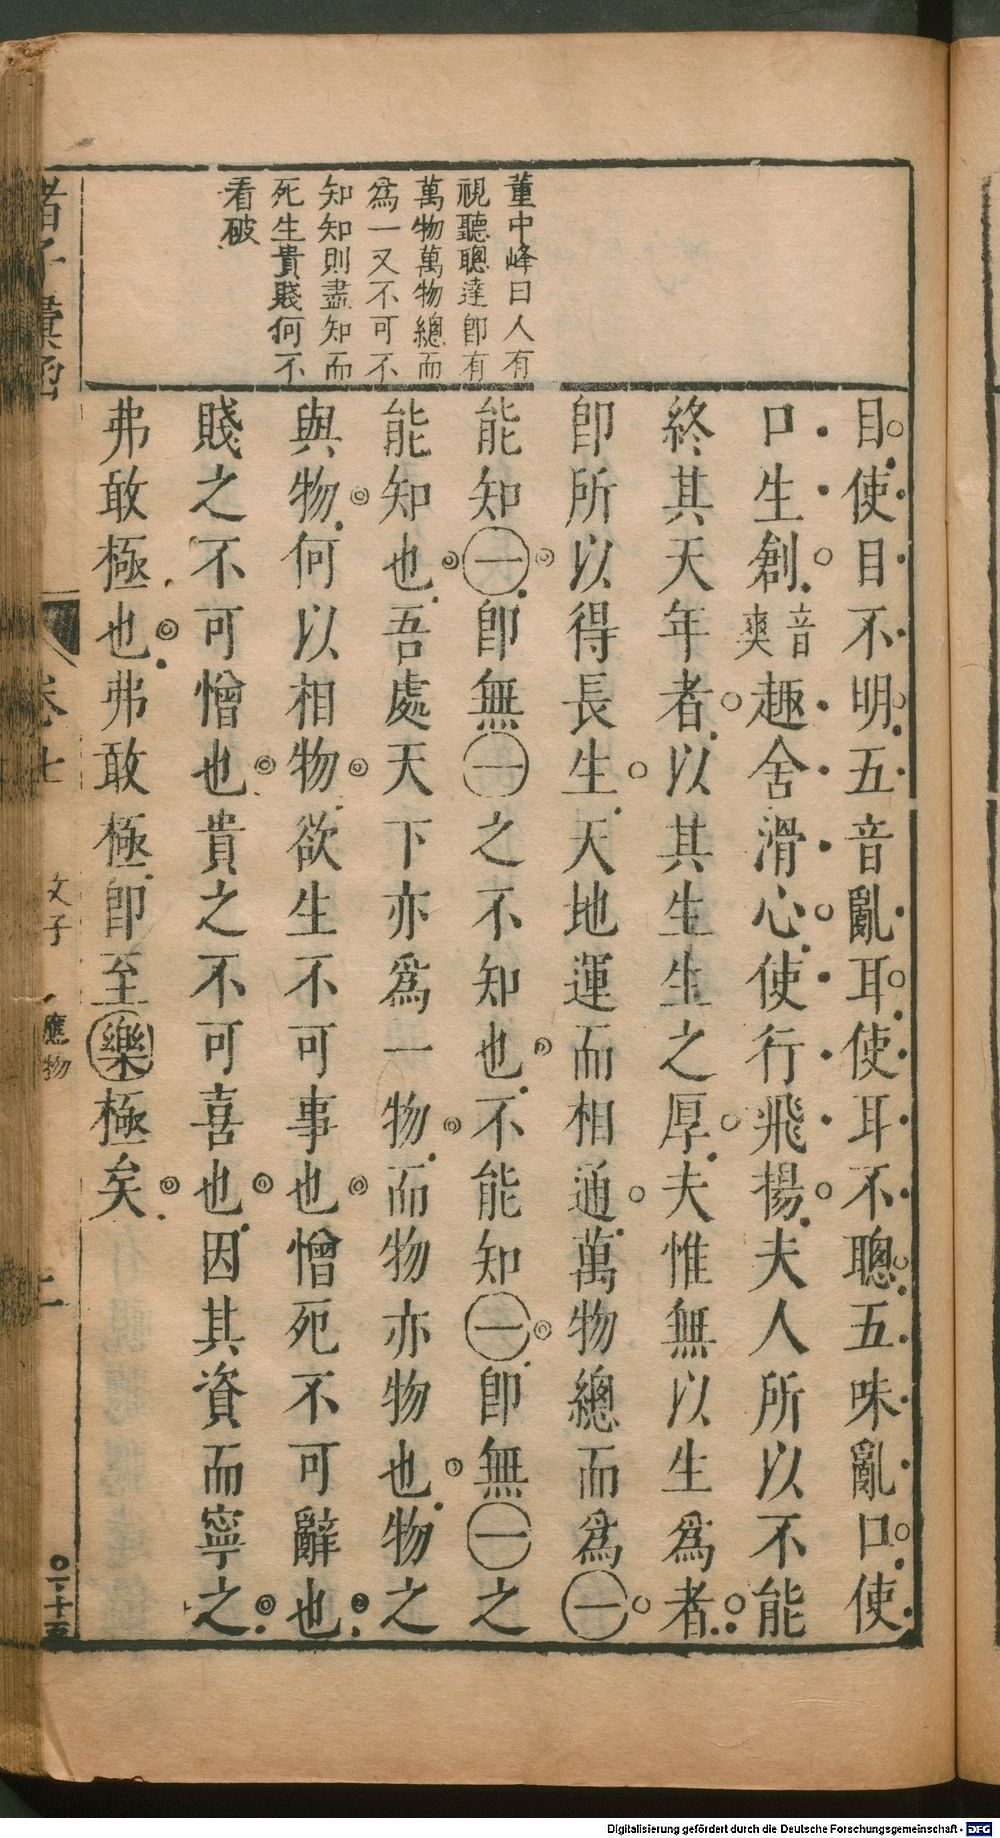 董中峰曰人有
視聽聰達卽有
萬物萬物總而
爲一又不可不
知知則盡知而
死生貴賤何不
看破
目使目不明五音亂耳使耳不聰五味亂口使
口生創音爽趣舍滑心使行飛揚夫人所以不能
終其天年者以其生生之厚夫惟無以生爲者
卽所以得長生天地運而相通萬物總而爲一
能知一卽無一之不知也不能知一卽無一之
能知也吾處天下亦爲一物而物亦物也物之
與物何以相物欲生不可事也憎死不可辭也
賤之不可憎也貴之不可喜也因其資而寧之
弗敢極也弗敢極卽至樂極矣
諸子彙函
卷七
文子
應物
二
〇一十五
Digitalisierung gefördert durch die Deutsche Forschungsgemeinschaft - DFG